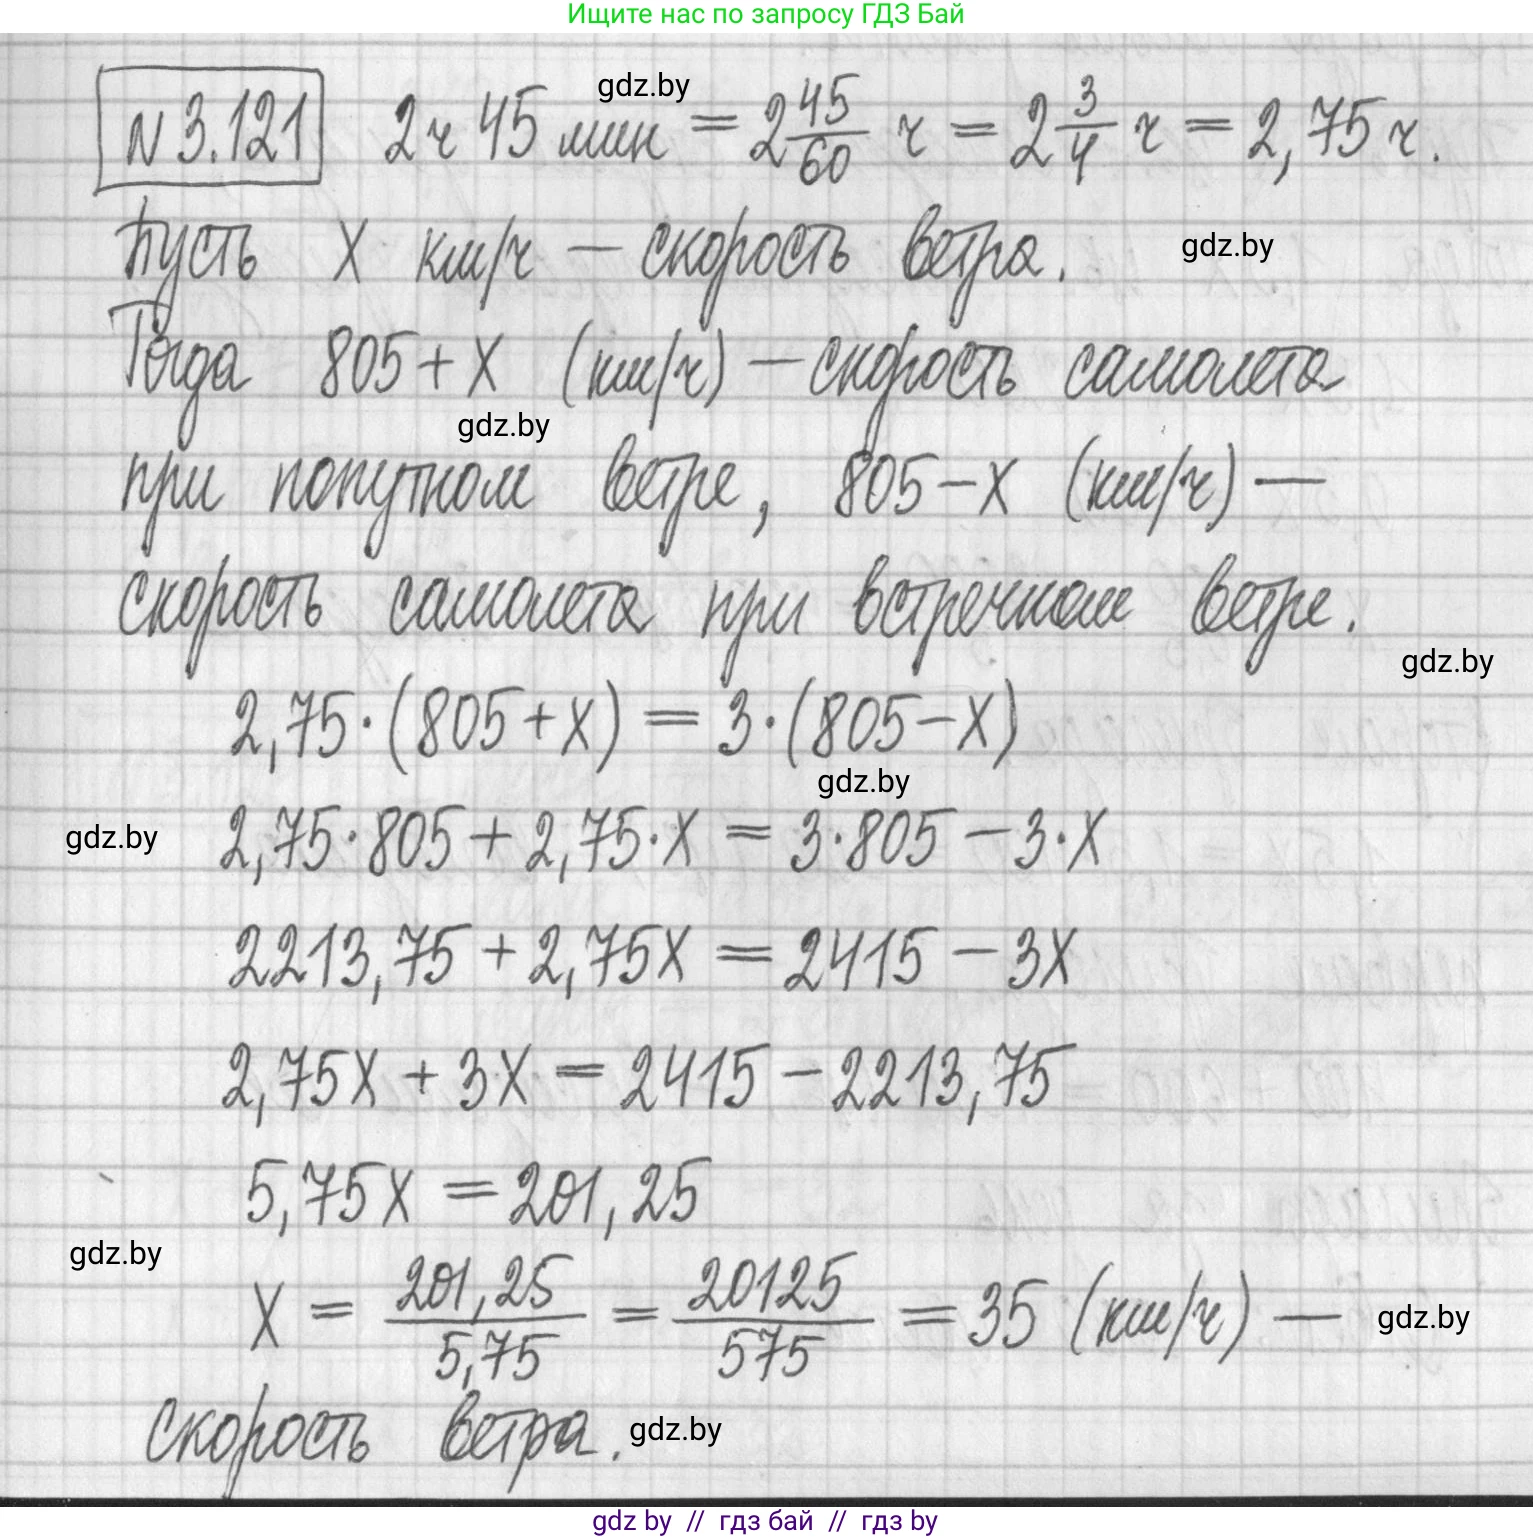 Ищите нас по запросу ГДЗ Бай
N 3.121 2 ч 45 мин = 2 45/60 ч = 2 3/4 ч = 2,75 ч.
gdz.by
Пусть х км/ч – скорость ветра.
gdz.by
Тогда 805 + х (км/ч) – скорость самолета
gdz.by
при попутном ветре, 805 – х (км/ч) –
скорость самолета при встречном ветре.
gdz.by
2,75 · (805 + х) = 3 · (805 – х)
gdz.by
gdz.by
2,75 · 805 + 2,75 · х = 3 · 805 – 3 · х
2213,75 + 2,75х = 2415 – 3х
2,75х + 3х = 2415 – 2213,75
5,75х = 201,25
gdz.by
х = 201,25/5,75 = 20125/575 = 35 (км/ч) –
gdz.by
скорость ветра.
gdz.by
gdz by // гдз бай // гдз by